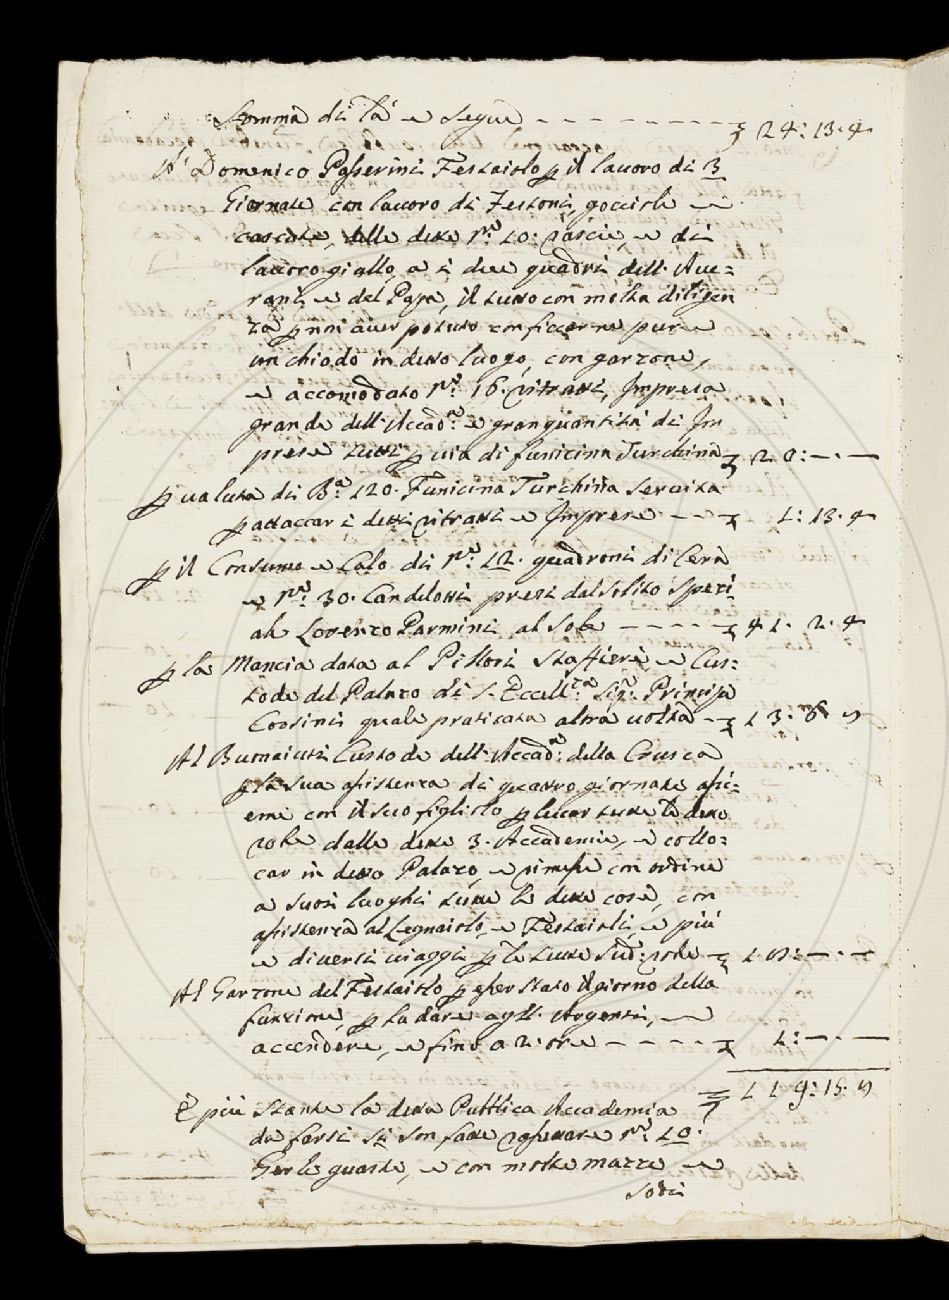 Somma di là e segue ------- £ 24: 13. 4
A' Domenico Passerini Festaiolo p il lauoro di 3
Giornate con lauoro di Festoni, gocciole e
cascate, delle dette N.° 10: fascie, e di
lauoro giallo, a i due quadri dell. Aue=
rani e del Papa, il tutto con molta diligen
za p non auer potuto conficcarne pure
un chiodo in detto luogo, con garzone,
e accomodato N.° 16. ritratti, Impresa
grande dell. Accad.a e gran quantità di Im
prese tutti p uia di funicina Turchina £ 22: — . —
p ualuta di B.a 120. Funicina Turchina seruita
p attaccar i detti ritratti e Imprese — — £ 1: 13. 4
p il Consumo e Calo di N.° 12. quadroni di Cera
e N.° 30. Candelotti presi dal solito Spezi
ale Lorenzo Parmini al Sole — — — — £ 41. 2. 4
p la Mancia data al Pistori Staffiere e Cus:
tode del Palazo di S. Eccell.za Sig.r Principe
Corsini quale praticata altra uolta — £ 13. 6. 8
Al Buonaiuti Custode dell. Accad.a della Crusca
p la sua assistenza di quattro giornate assi=
eme con il suo figliolo p leuar tutte le dette
robe dalle dette 3. Accademie, e collo:
car in detto Palazo, e rimesse con ordine
a suoi luoghi tutte le dette cose, con
assistenza al Legnaiolo, e Festaiolo, e più
e diuersi uiaggi p le tutte Sud. robe — £ 15: — . —
Al Garzone del Festaiolo p esser stato il giorno della
funzione, p badare agli Argenti,
accendere, e fino a 2. ore — — — — £ 1: — . —
£ 119: 15. 8
E più stante la detta Pubblica Accademia
da farsi si son fatte rassettare N.° 10.
Gerle guaste, e con molte mazze e
sodi